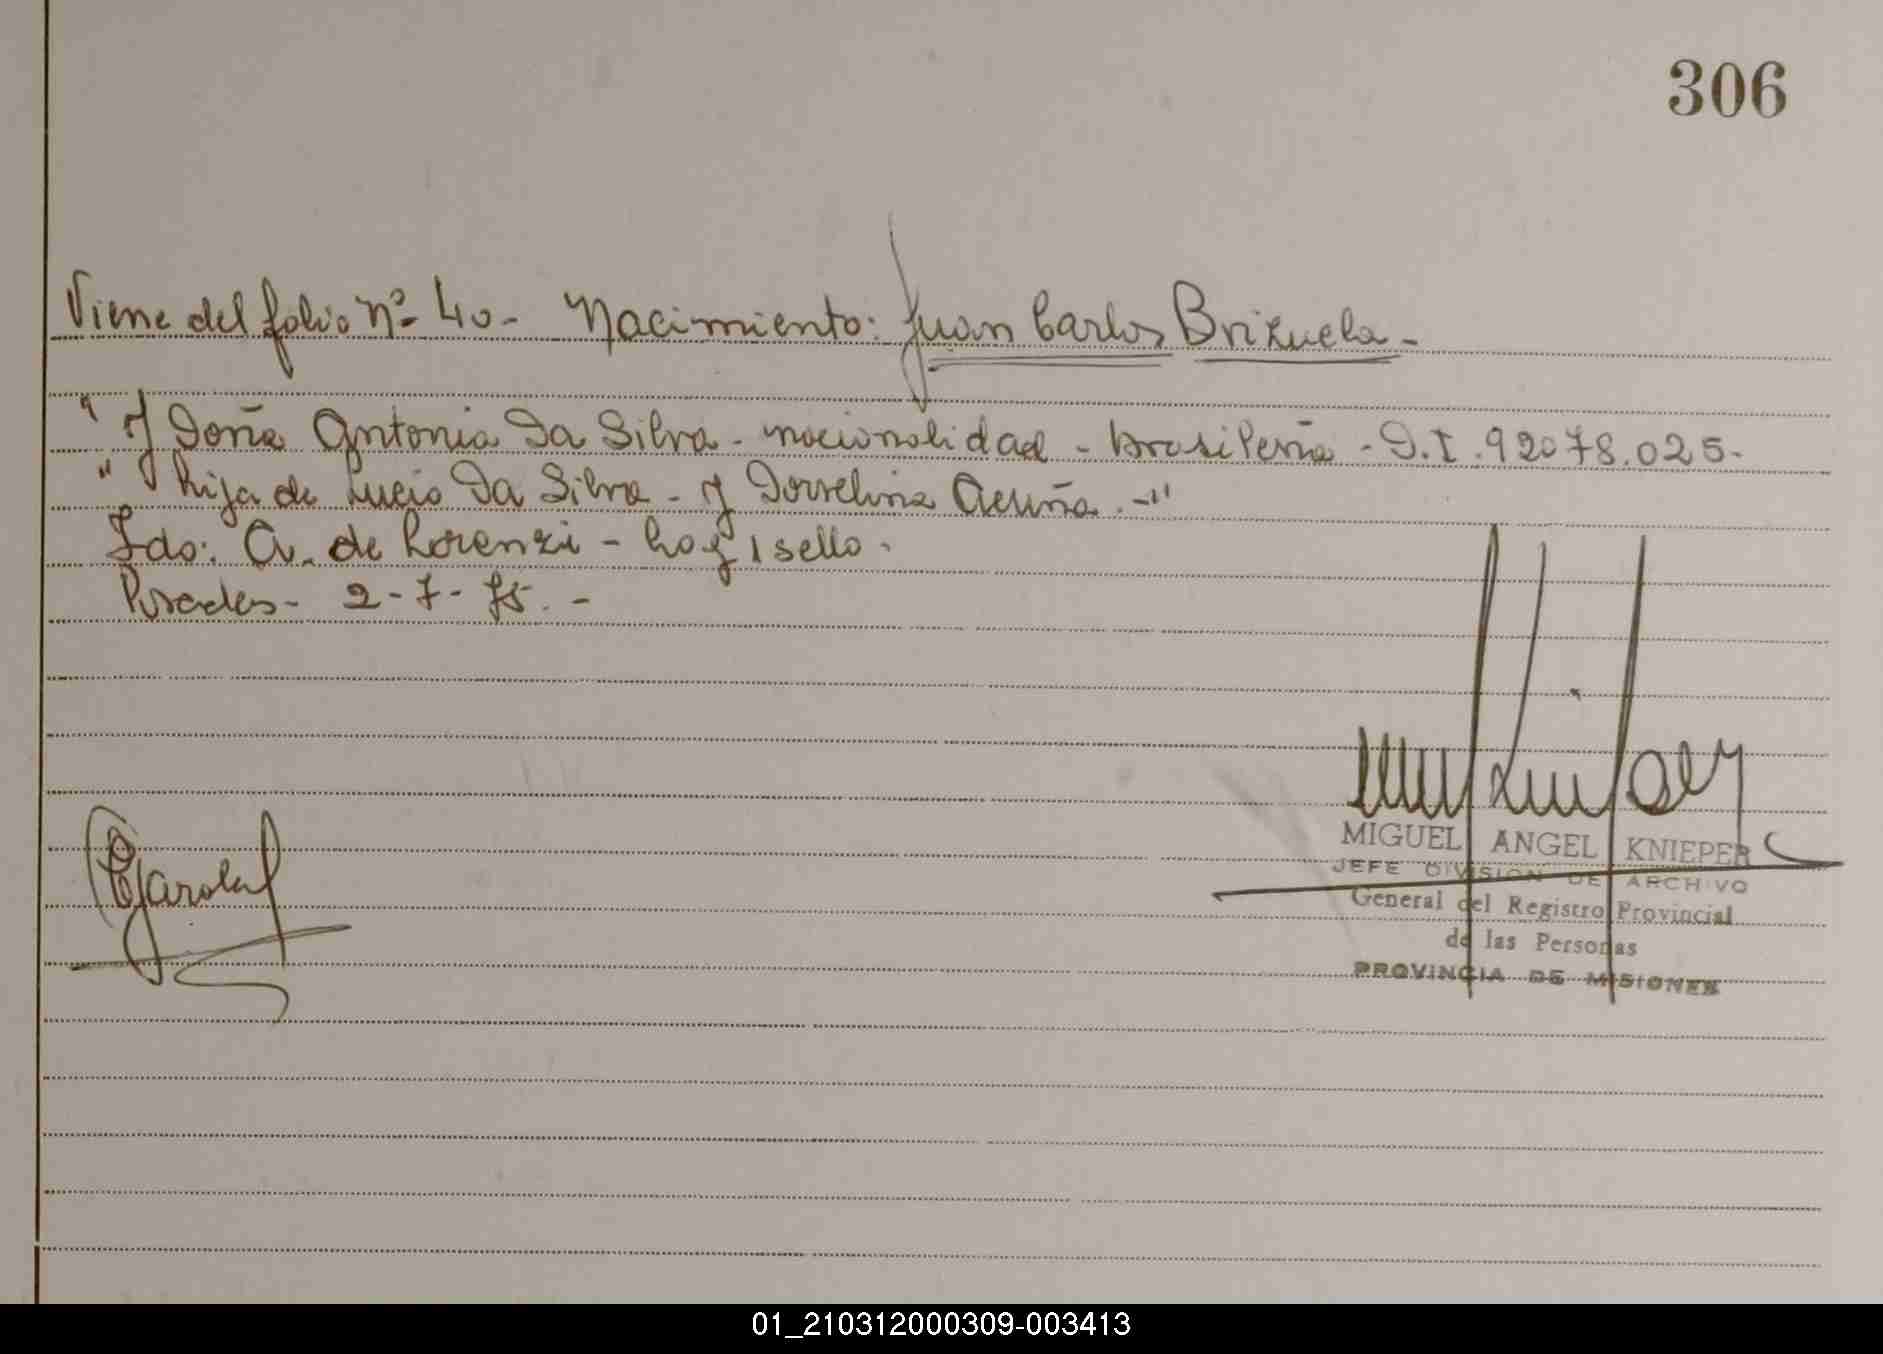 306
Viene del folio Nº 40- Nacimiento: Juan Carlos Brizuela-
" y Doña Antonia Da Silva - nacionalidad - brasileña - D.I. 92078.025-
" hija de Lucio Da Silva - y Dorvelina Acuña.-"
Fdo: A. de Lorenzi - hay 1 sello.
Posadas- 2-7-75.-
MIGUEL ANGEL KNIEPER
JEFE DIVISION DE ARCHIVO
General del Registro Provincial
de las Personas
PROVINCIA DE MISIONES
01_210312000309-003413